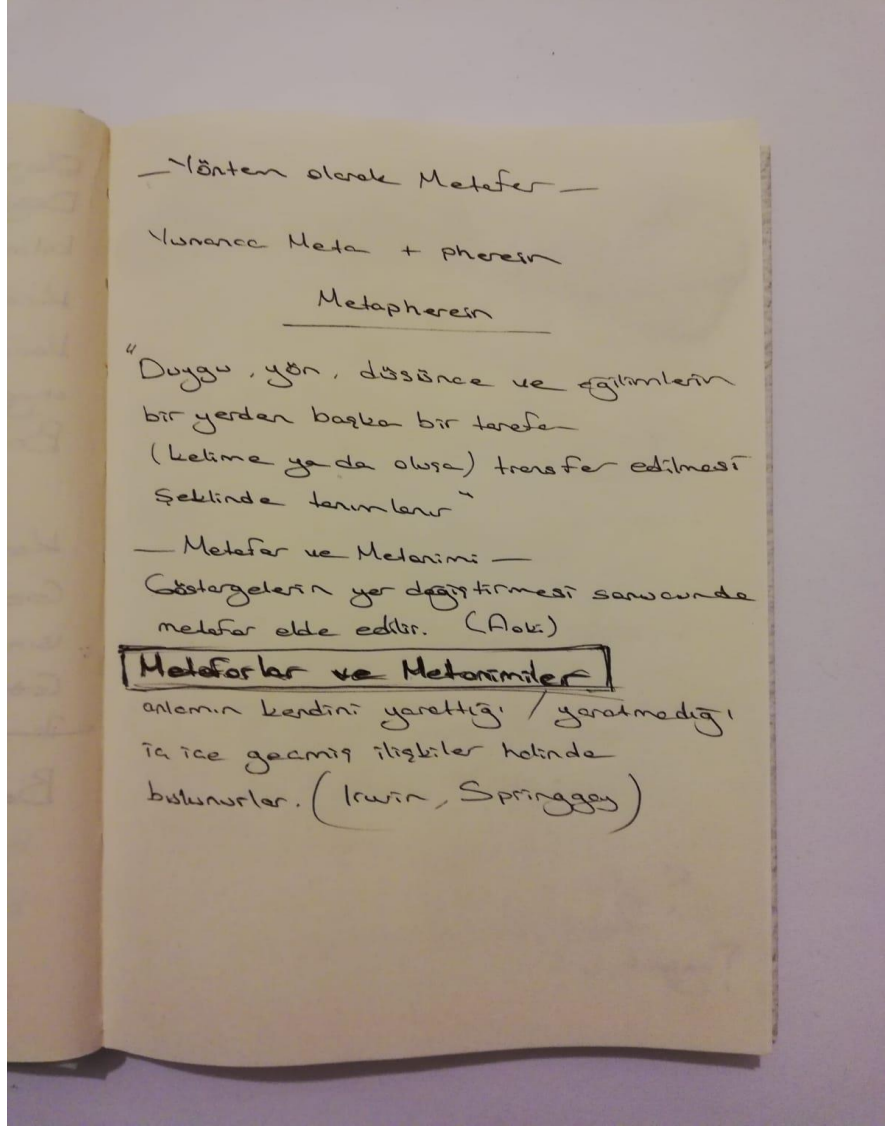 — Yöntem olarak Metafor —
Yunanca Meta + pherein
Metapherein
"Duygu, yön, düşünce ve eğilimlerin
bir yerden başka bir tarafa
(kelime ya da oluşa) transfer edilmesi
şeklinde tanımlanır"
— Metafor ve Metonimi —
Göstergelerin yer değiştirmesi sonucunda
metafor elde edilir. (Aoki)
Metaforlar ve Metonimiler
anlamın kendini yarattığı / yaratmadığı
iç içe geçmiş ilişkiler halinde
bulunurlar. (Irwin, Springgay)